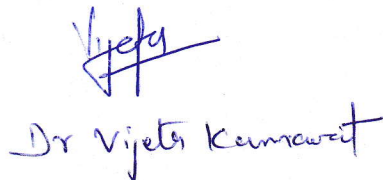 Vijeta
Dr Vijeta Kumawat